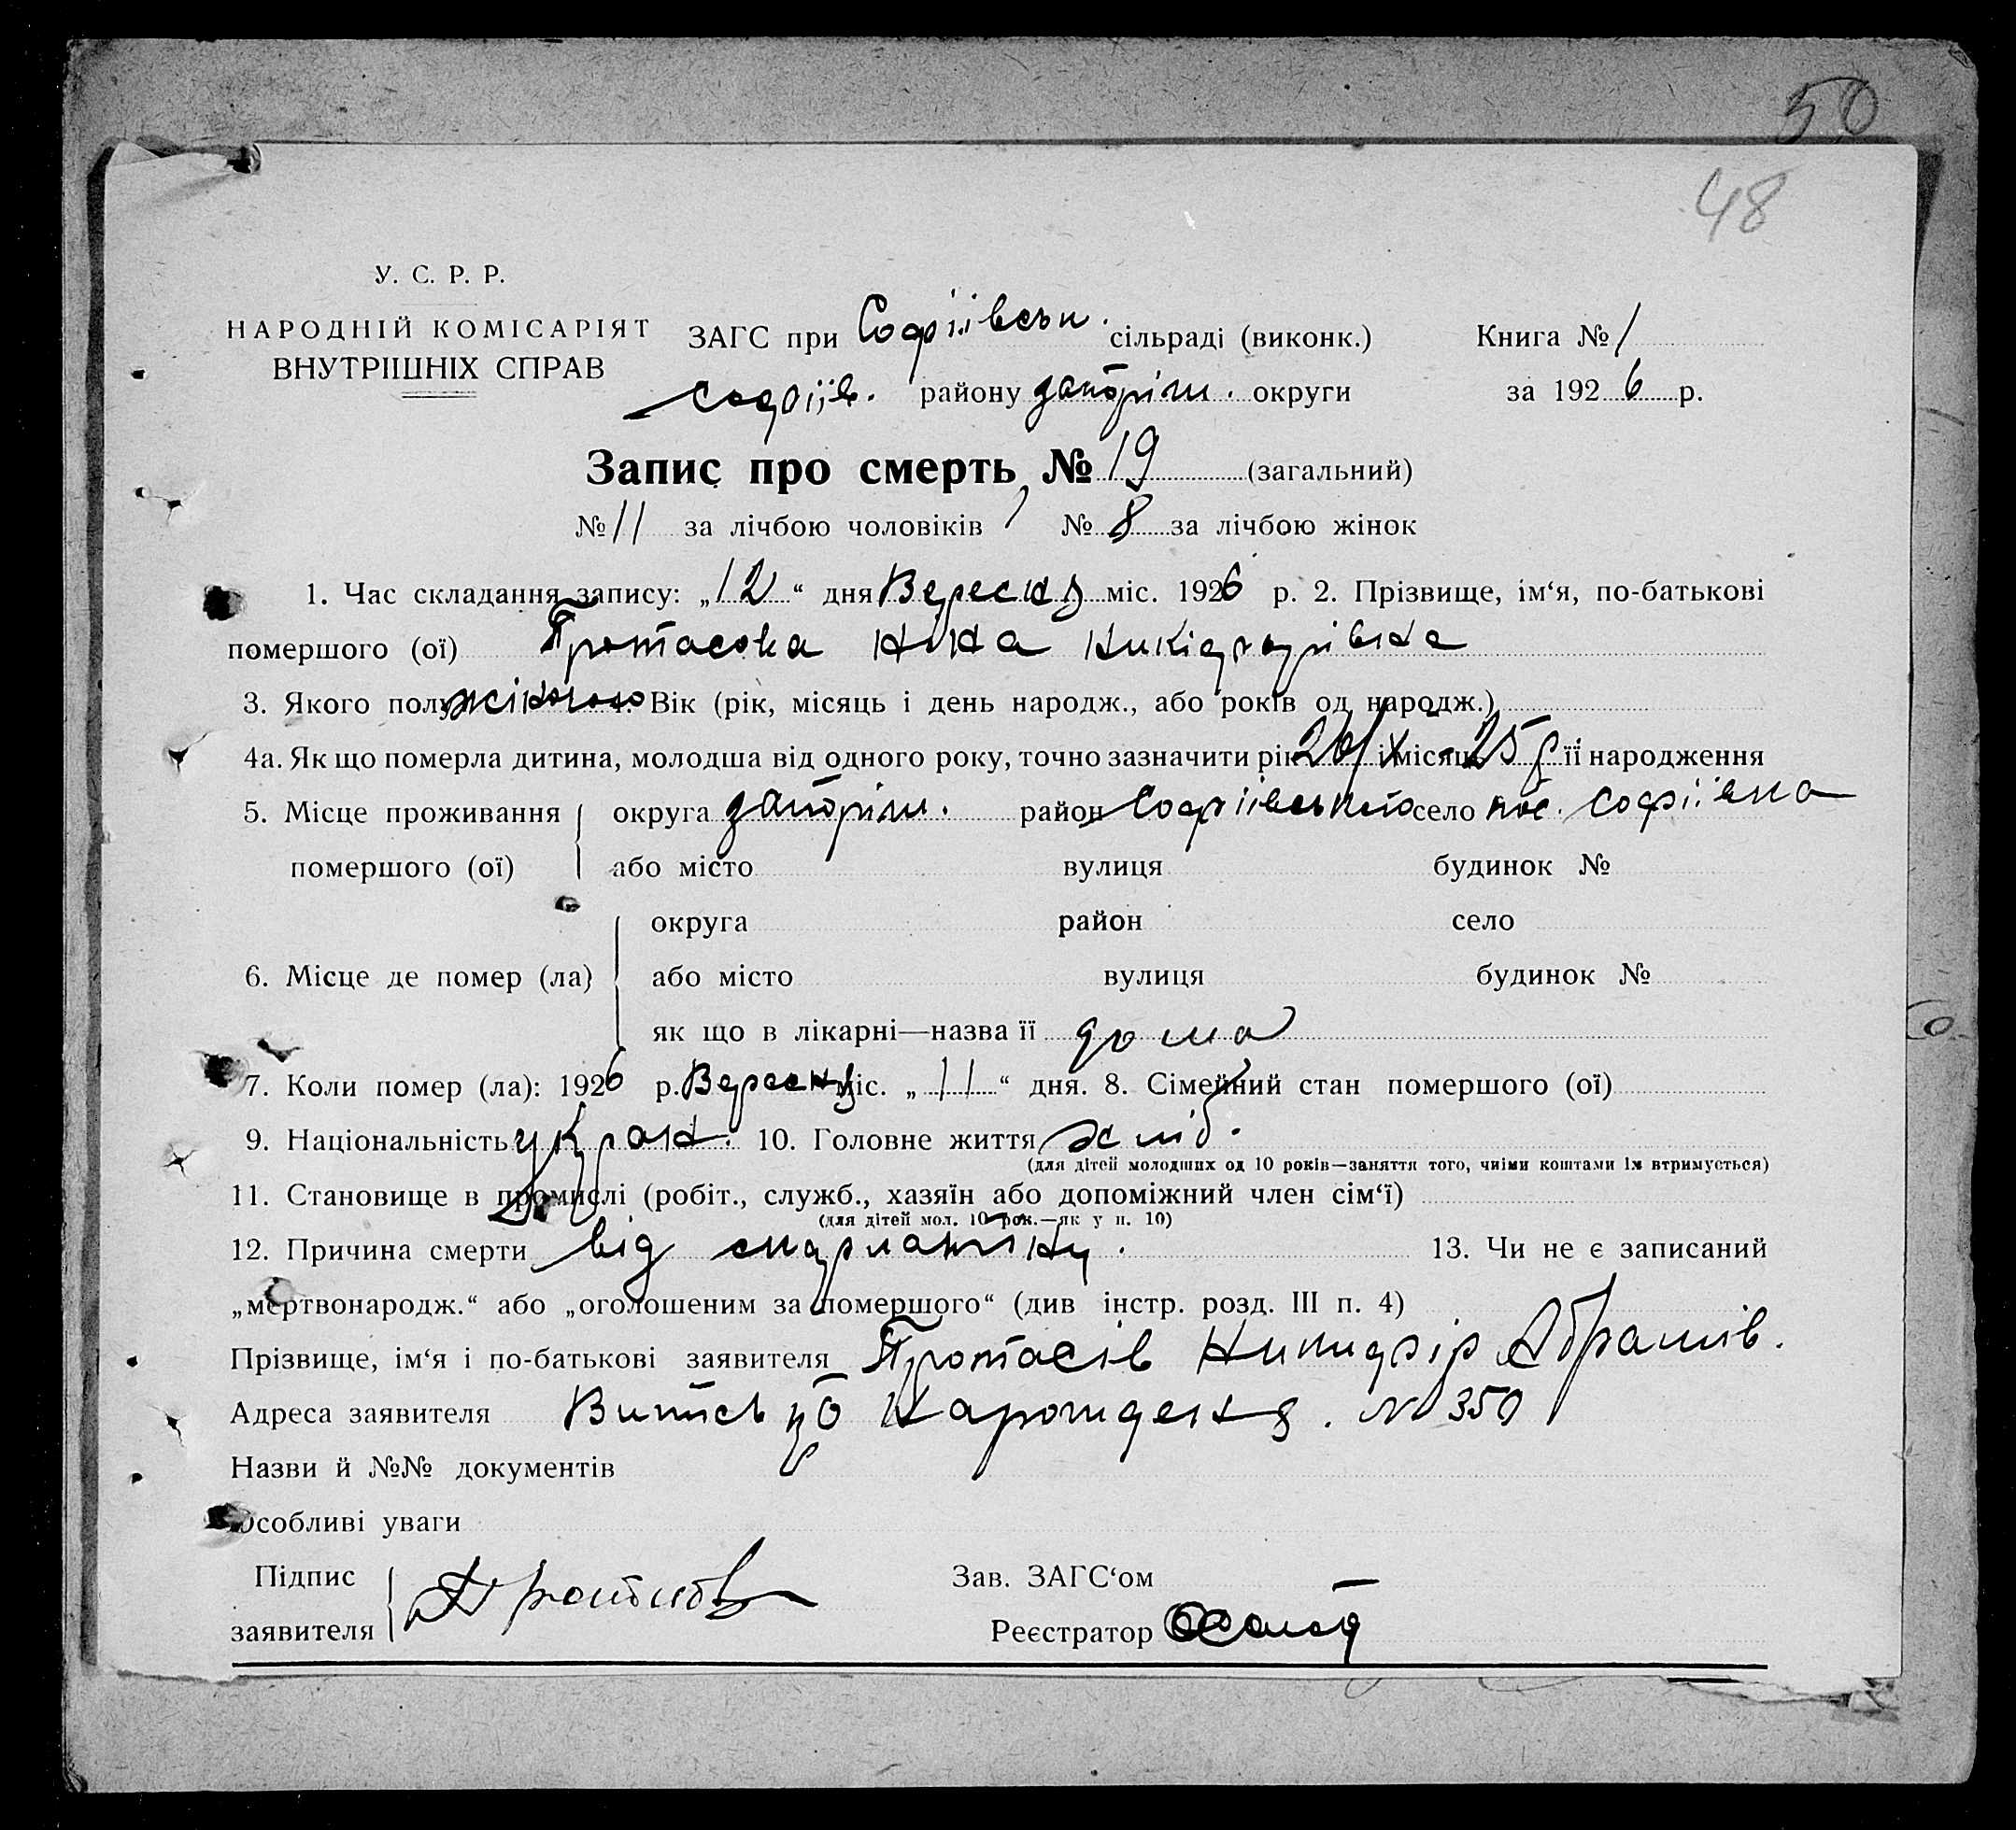 50
48
У. С. Р. Р.
НАРОДНІЙ КОМІСАРІЯТ
ВНУТРІШНІХ СПРАВ
ЗАГС при Софіївськ. сільраді (виконк.) Книга № 1
Софіїв. району Запоріж. округи за 1926 р.
Запис про смерть, № 19 (загальний)
№ 11 за лічбою чоловіків № 8 за лічбою жінок
1. Час складання запису: „12“ дня Вересня міс. 1926 р. 2. Прізвище, ім‘я, по-батькові
помершого (ої) Протасова Ніна
3. Якого полу жіночого Вік (рік, місяць і день народж., або років од народж.)
4а. Як що померла дитина, молодша від одного року, точно зазначити рік і місяць її народження
5. Місце проживання округа Запоріж. район Софіївського село пос. Софіївка
помершого (ої) або місто вулиця будинок №
округа район село
6. Місце де помер (ла) або місто вулиця будинок №
як що в лікарні—назва її дома
7. Коли помер (ла): 1926 р. Вересня міс. „11“ дня. 8. Сімейний стан помершого (ої)
9. Національність Украін. 10. Головне життя хліб.
(для дітей молодших од 10 років—заняття того, чиїми коштами їх втримується)
11. Становище в промислі (робіт., служб., хазяїн або допоміжний член сім‘ї)
(для дітей мол. 10 рок.—як у п. 10)
12. Причина смерти від скарлатіни. 13. Чи не є записаний
„мертвонародж.“ або „оголошеним за помершого“ (див інстр. розд. III п. 4)
Прізвище, ім‘я і по-батькові заявителя Протасів Никидфір Абрамів.
Адреса заявителя Витсь про Народження. № 350
Назви й №№ документів
Особливі уваги
Підпис Зав. ЗАГС‘ом
заявителя Реєстратор